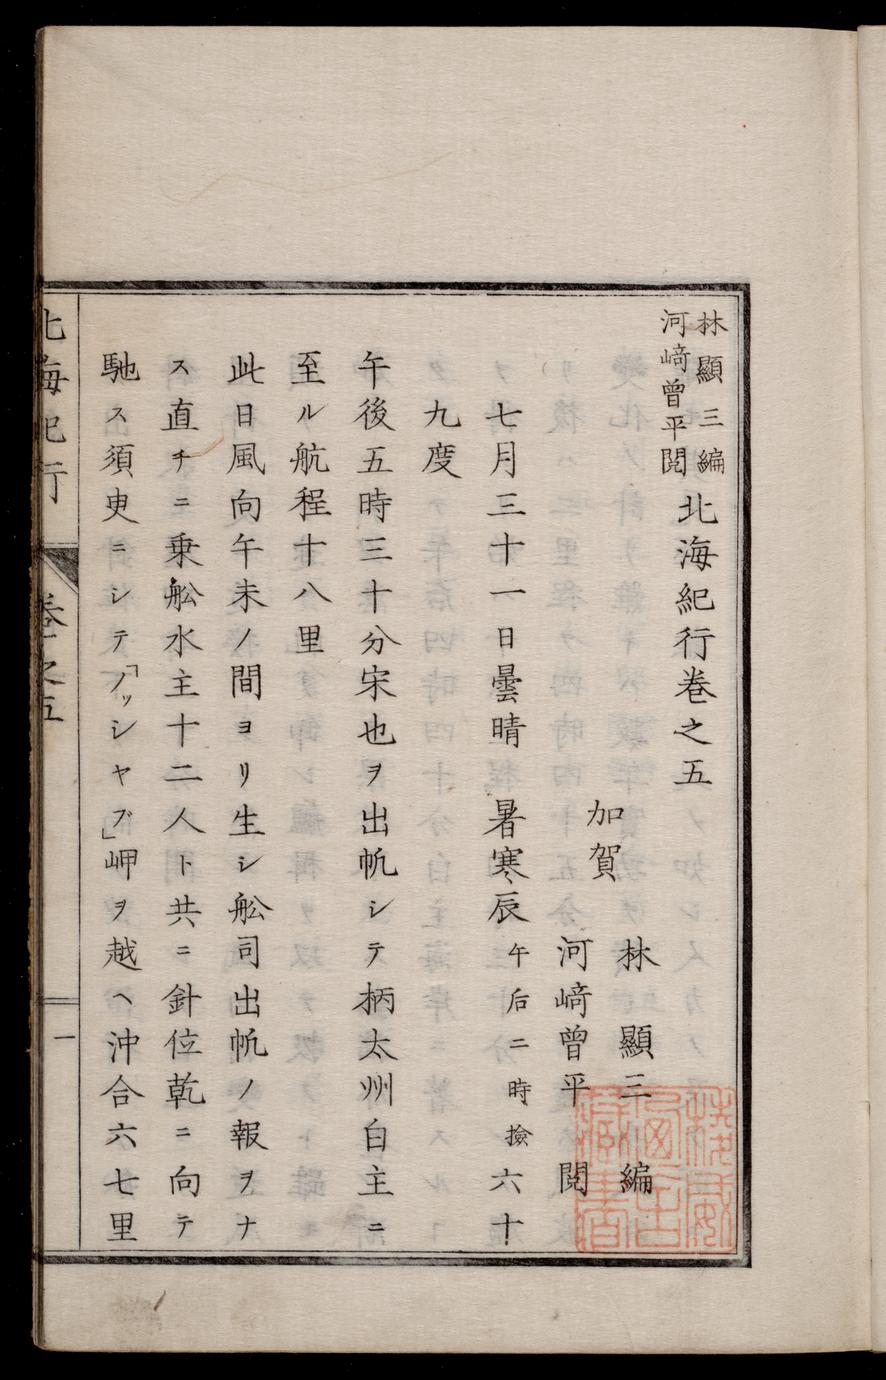 林顯三編
河﨑曾平閲
北海紀行巻之五
加賀
林顯三編
河﨑曾平閲
七月三十一日曇晴 暑寒辰午后二時撿六十
九度
午後五時三十分宋也ヲ出帆シテ柄太州白主ニ
至ル航程十八里
此日風向午未ノ間ヨリ生シ舩司出帆ノ報ヲナ
ス直チニ乗舩水主十二人ト共ニ針位乾ニ向テ
馳ス須臾ニシテ「ノッシヤブ」岬ヲ越ヘ沖合六七里
北海紀行
巻之五
一